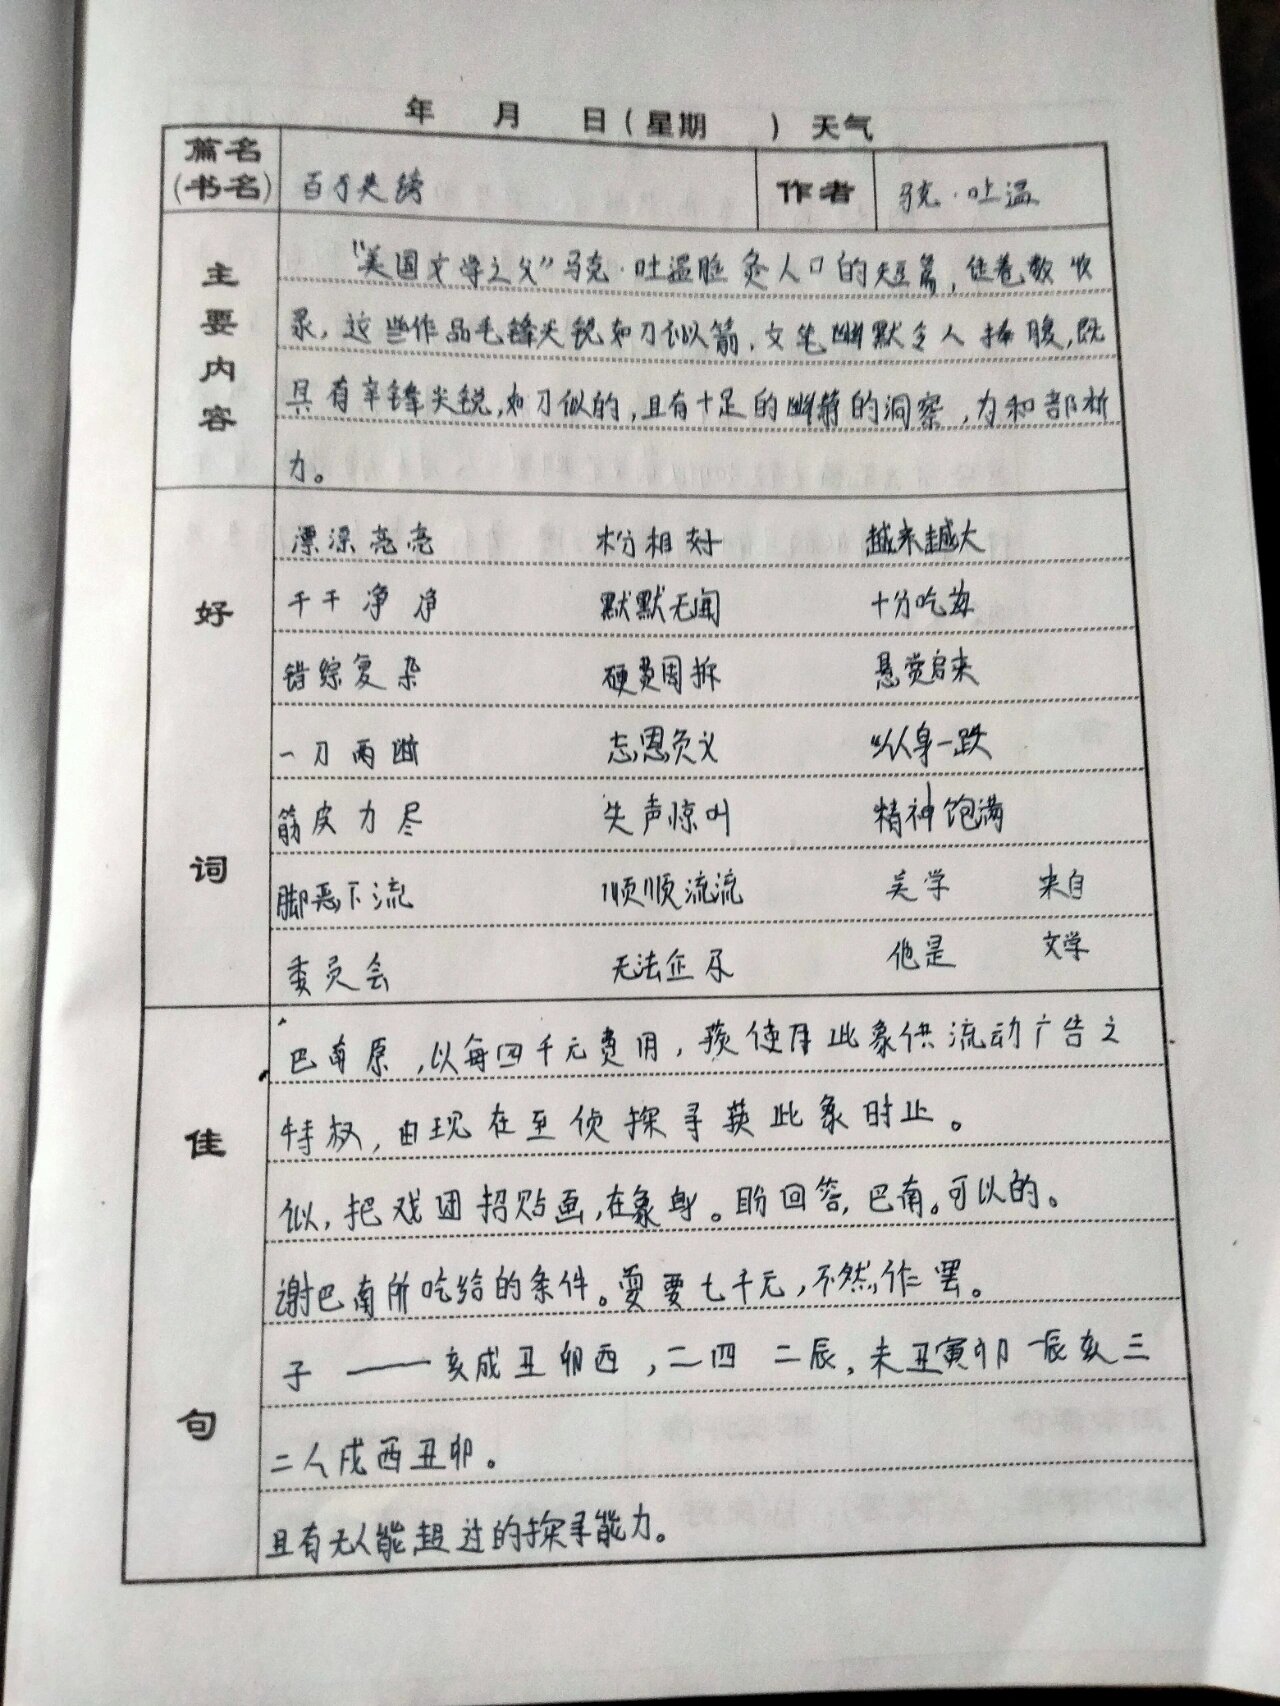 年 月 日(星期 ) 天气
篇名
(书名) 百万英镑 作者 马克·吐温
主要内容
"美国文学之父"马克·吐温脍炙人口的短篇,往卷数收
录,这些作品毛锋尖锐如刀似箭,文笔幽默令人捧腹,既
具有辛锋尖锐,如刀似的,且有十足的幽静的洞察,为和部析
力。
好词
漂漂亮亮 相好 越来越大
干干净净 默默无闻 十分吃海
错综复杂 硬费周折 悬赏启来
一刀两断 忘恩负义 从身一跌
筋皮力尽 失声惊叫 精神饱满
脚恶下流 顺顺流流 美学 来自
委员会 无法企及 他是 文学
佳句
巴南原,以每四千元费用,使用此象供流动广告之
特权,由现在至侦探寻获此象时止。
似,把戏团招贴画,在象身。盼回答,巴南。可以的。
谢巴南所吃给的条件。要七千元,不然,作罢。
子 ——亥成丑卯酉,二四 二辰,未丑寅卯一辰亥三
二人戌酉丑卯。
且有无人能超过的探寻能力。